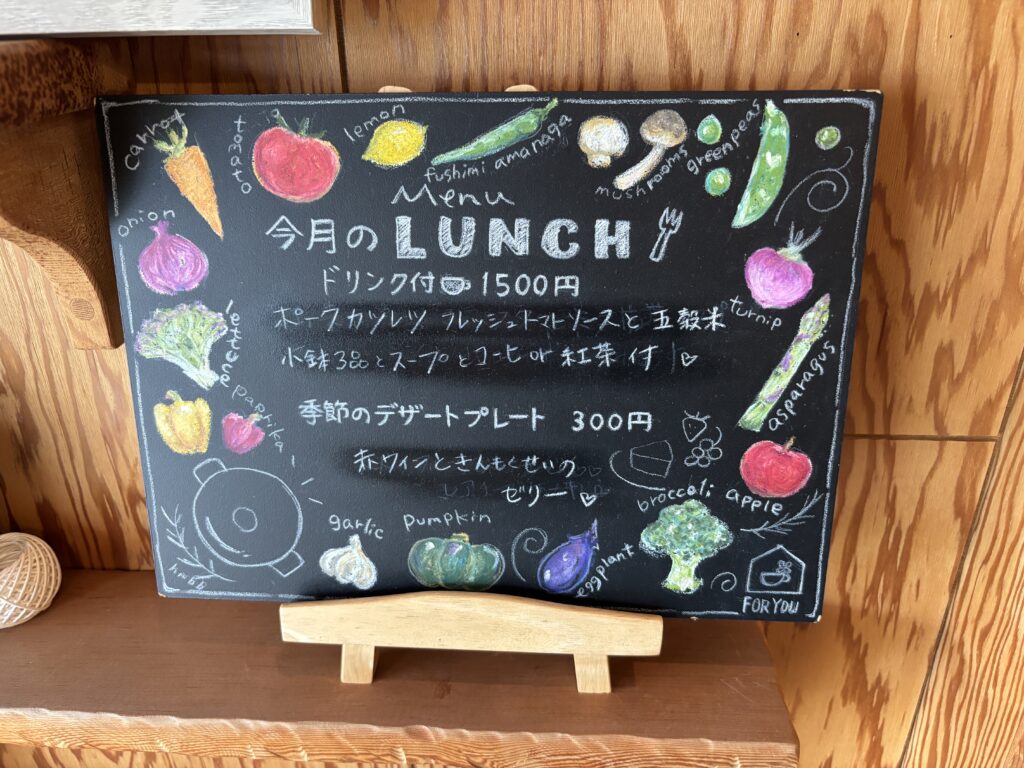 carrot
tomato
lemon
fushimi amanaga
mushrooms
greenpeas
onion
Menu
今月の LUNCH
ドリンク付 1500円
ポークカツレツ フレッシュトマトソースと 五穀米
小鉢3品とスープとコーヒー or 紅茶 付
turnip
asparagus
paprika
季節のデザートプレート 300円
赤ワインときんもくせいの
ゼリー
broccoli
apple
garlic
pumpkin
eggplant
FOR YOU